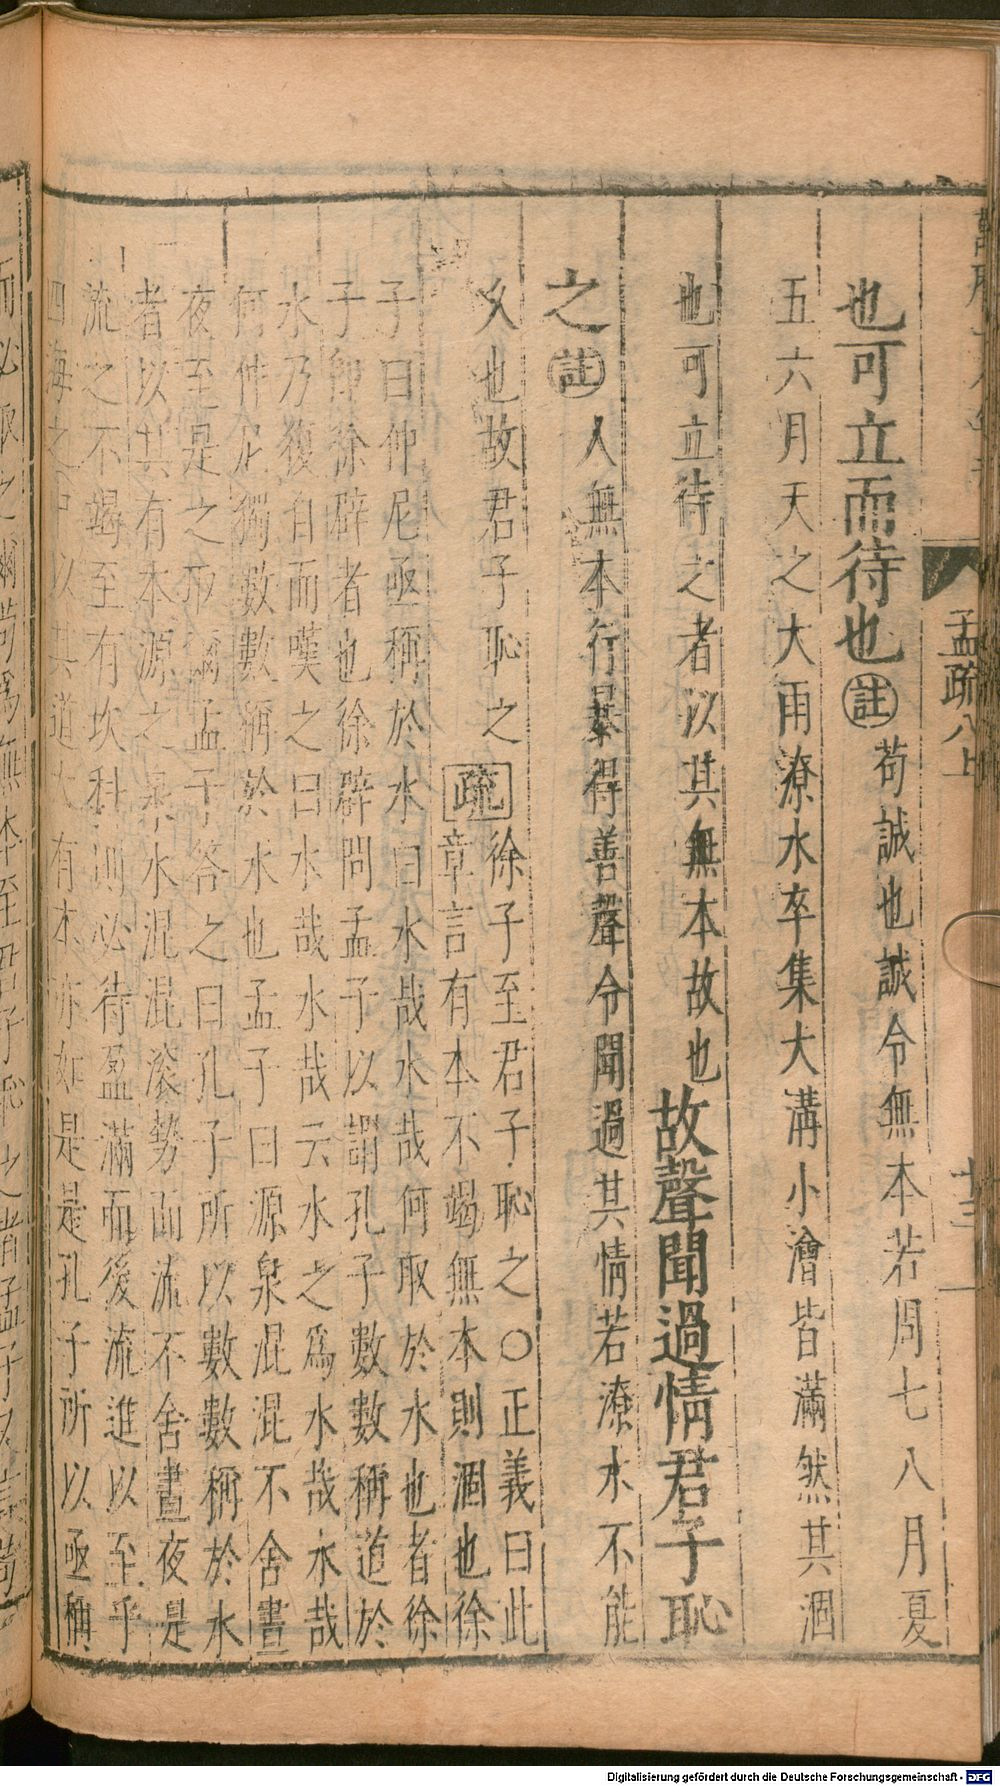 孟疏八上
十三
也可立而待也註苟誠也誠令無本若周七八月夏
五六月天之大雨潦水卒集大溝小澮皆滿然其涸
也可立待之者以其無本故也故聲聞過情君子恥
之註人無本行暴得善聲令聞過其情若潦水不能
乆也故君子恥之疏徐子至君子恥之○正義曰此
章言有本不竭無本則涸也徐
子曰仲尼亟稱於水曰水哉水哉何取於水也者徐
子即徐辟者也徐辟問孟子以謂孔子數數稱道於
水乃復自而嘆之曰水哉水哉云水之爲水哉水哉
何仲尼獨數數稱於水也孟子曰源泉混混不舍晝
夜至是之取爾孟子答之曰孔子所以數數稱於水
者以其有本源之泉水混混滚勢而流不舍晝夜是
流之不竭至有坎科則必待盈滿而後流進以至乎
四海之中以其道大有本亦如是是孔子所以亟稱
而必取之爾苟爲無本至君子恥之者孟子又言苟
Digitalisierung gefördert durch die Deutsche Forschungsgemeinschaft - DFG